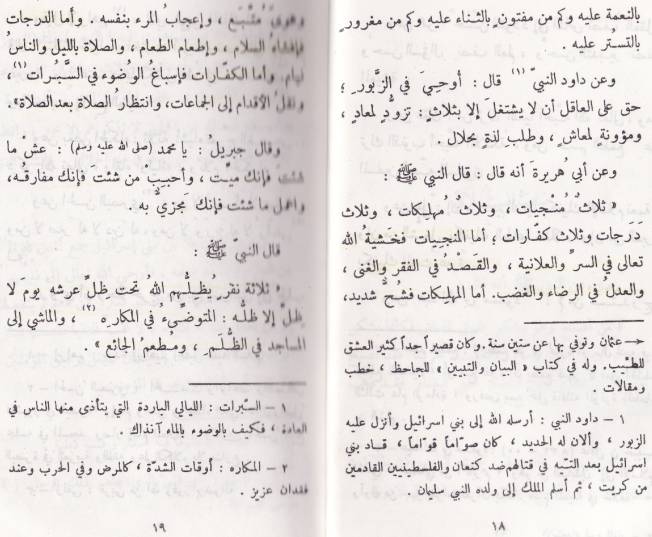 بالنعمة عليه وكم من مفتون بالثناء عليه وكم من مغرور
بالتستر عليه .
وعن داود النبي (١) قال : أوحِيَ في الزَّبُورِ ؛
حق على العاقل أن لا يشتغل إلا بثلاثٍ : تزوُّدٍ لمعادٍ ،
ومؤونة لمعاش ، وطلب لذةٍ بحلال .
وعن أبي هُريرة أنه قال : قال النبي ﷺ :
« ثلاثٌ مُنْجيات ، وثلاثٌ مُهلِكات ، وثلاث
درجات وثلاث كفّارات ؛ أما المنجيات فخشيةُ الله
تعالى في السرّ والعلانية ، والقَصْدُ في الفقر والغنى ،
والعدلُ في الرضاء والغضب. أما المهلكات فشُحٌّ شديد،
→ عثمان وتوفي بها عن ستين سنة. وكان قصيراً جداً كثير العشق
للطيب. وله في كتاب « البيان والتبيين » للجاحظ ، خطب
ومقالات .
١ – داود النبي : أرسله الله إلى بني اسرائيل وأنزل عليه
الزبور ، وألان له الحديد ، كان صوّاماً قوّاماً ، قاد بني
اسرائيل بعد التيه في قتالهم ضد كنعان والفلسطينيين القادمين
من كريت ، ثم أسلم الملك إلى ولده النبي سليمان .
١٨
وهوىً مُتَّبَع ، وإعجابُ المرء بنفسه . وأما الدرجات
فإفشاءُ السلام ، وإطعام الطعام ، والصلاة بالليل والناسُ
نيام. وأما الكفّارات فإسباغُ الوضوء في السَّبُرات (١) ،
ونقلُ الأقدام إلى الجماعات، وانتظارُ الصلاة بعد الصلاة».
وقال جبريلُ : يا محمد (صلى الله عليه وسلم) : عش ما
شئت فإنك ميّت ، وأحبِبْ من شئت فإنك مفارقُه،
واعمل ما شئت فإنك مَجزيٌّ به .
قال النبيّ ﷺ :
« ثلاثة نفرٍ يُظلُّهم الله تحت ظلِّ عرشه يومَ لا
ظلَّ إلا ظلُّه : المتوضِّىءُ في المكاره (٢) ، والماشي إلى
المساجد في الظُّلَمِ ، ومطعمُ الجائع » .
١ – السَّبرات : الليالي الباردة التي يتأذى منها الناس في
العادة ، فكيف بالوضوء بالماء آنذاك .
٢ – المكاره : أوقات الشدّة ، كالمرض وفي الحرب وعند
فقدان عزيز .
١٩